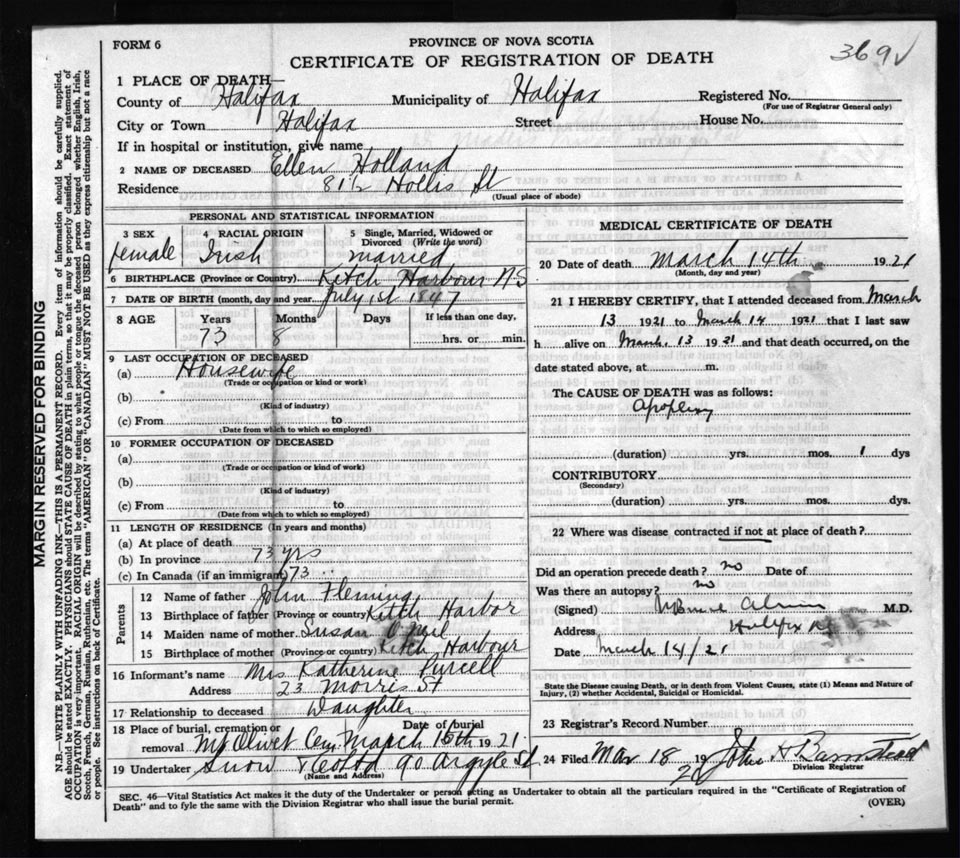 FORM 6
PROVINCE OF NOVA SCOTIA
CERTIFICATE OF REGISTRATION OF DEATH
369 √
1 PLACE OF DEATH—
County of Halifax Municipality of Halifax Registered No.
(For use of Registrar General only)
City or Town Halifax Street House No.
If in hospital or institution, give name
2 NAME OF DECEASED Ellen Holland
Residence 81½ Hollis St
(Usual place of abode)
PERSONAL AND STATISTICAL INFORMATION
3 SEX female
4 RACIAL ORIGIN Irish
5 Single, Married, Widowed or Divorced (Write the word) married
6 BIRTHPLACE (Province or Country) Ketch Harbour NS
7 DATE OF BIRTH (month, day and year July 1st 1847
8 AGE Years Months Days If less than one day,
73 8 hrs. or min.
9 LAST OCCUPATION OF DECEASED
(a) Housewife
(Trade or occupation or kind or work)
(b)
(Kind of industry)
(c) From to
(Date from which to which so employed)
10 FORMER OCCUPATION OF DECEASED
(a)
(Trade or occupation or kind of work)
(b)
(Kind of industry)
(c) From to
(Date from which to which so employed)
11 LENGTH OF RESIDENCE (In years and months)
(a) At place of death
(b) In province 73 yrs
(c) In Canada (if an immigrant) 73
Parents
12 Name of father John Fleming
13 Birthplace of father (Province or country) Ketch Harbor
14 Maiden name of mother Susan
15 Birthplace of mother (Province or country) Ketch Harbour
16 Informant's name Mrs Katherine Purcell
Address 23 Morris St
17 Relationship to deceased Daughter
18 Place of burial, cremation or removal Mt Olivet Cem Date of burial March 15th 1921
19 Undertaker Snow & Co Ltd 90 Argyle St
(Name and Address)
MEDICAL CERTIFICATE OF DEATH
20 Date of death March 14th 1921
(Month, day and year)
21 I HEREBY CERTIFY, that I attended deceased from March
13 1921 to March 14 1921 that I last saw
h alive on March 13 1921 and that death occurred, on the
date stated above, at m.
The CAUSE OF DEATH was as follows:
Apoplexy
(duration) yrs. mos. 1 dys
CONTRIBUTORY
(Secondary)
(duration) yrs. mos. dys.
22 Where was disease contracted if not at place of death?
Did an operation precede death? no Date of
Was there an autopsy? no
(Signed) M.D.
Address Halifax
Date March 14/21
State the Disease causing Death, or in death from Violent Causes, state (1) Means and Nature of
Injury, (2) whether Accidental, Suicidal or Homicidal.
23 Registrar's Record Number
24 Filed Mar 18 1921 John H Barnstead
Division Registrar
SEC. 46—Vital Statistics Act makes it the duty of the Undertaker or person acting as Undertaker to obtain all the particulars required in the "Certificate of Registration of
Death" and to fyle the same with the Division Registrar who shall issue the burial permit.
(OVER)
MARGIN RESERVED FOR BINDING
N.B.—WRITE PLAINLY WITH UNFADING INK—THIS IS A PERMANENT RECORD. Every item of information should be carefully supplied.
AGE should be stated EXACTLY. PHYSICIANS should STATE CAUSE OF DEATH in plain terms, so that it may be properly classified. Exact statement of
OCCUPATION is very important. RACIAL ORIGIN will be described by stating to what people or tongue the deceased person belonged whether English, Irish,
Scotch, French, German, Russian, Ruthenian, etc. The terms "AMERICAN" OR "CANADIAN" MUST NOT BE USED as they express citizenship but not a race
or people. See instructions on back of Certificate.